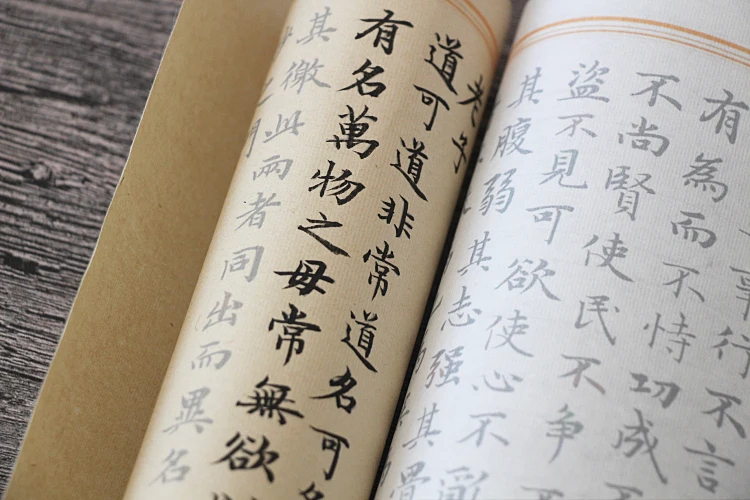 老子
道可道非常道名可名
有名萬物之母常無欲
其徼此兩者同出而異名
門
事行不言
有為而不恃功成
不尚賢使民不爭
盜不見可欲使心不亂
其腹弱其志强其骨